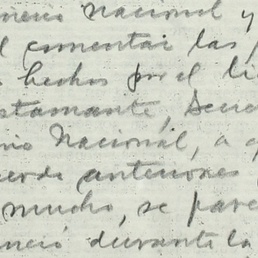 nerio Nacional y
l comentar las
s hechos por el li
stamante, Secre
rio Nacional, a q
uerda anteriores
mucho, se pare
nció durante la